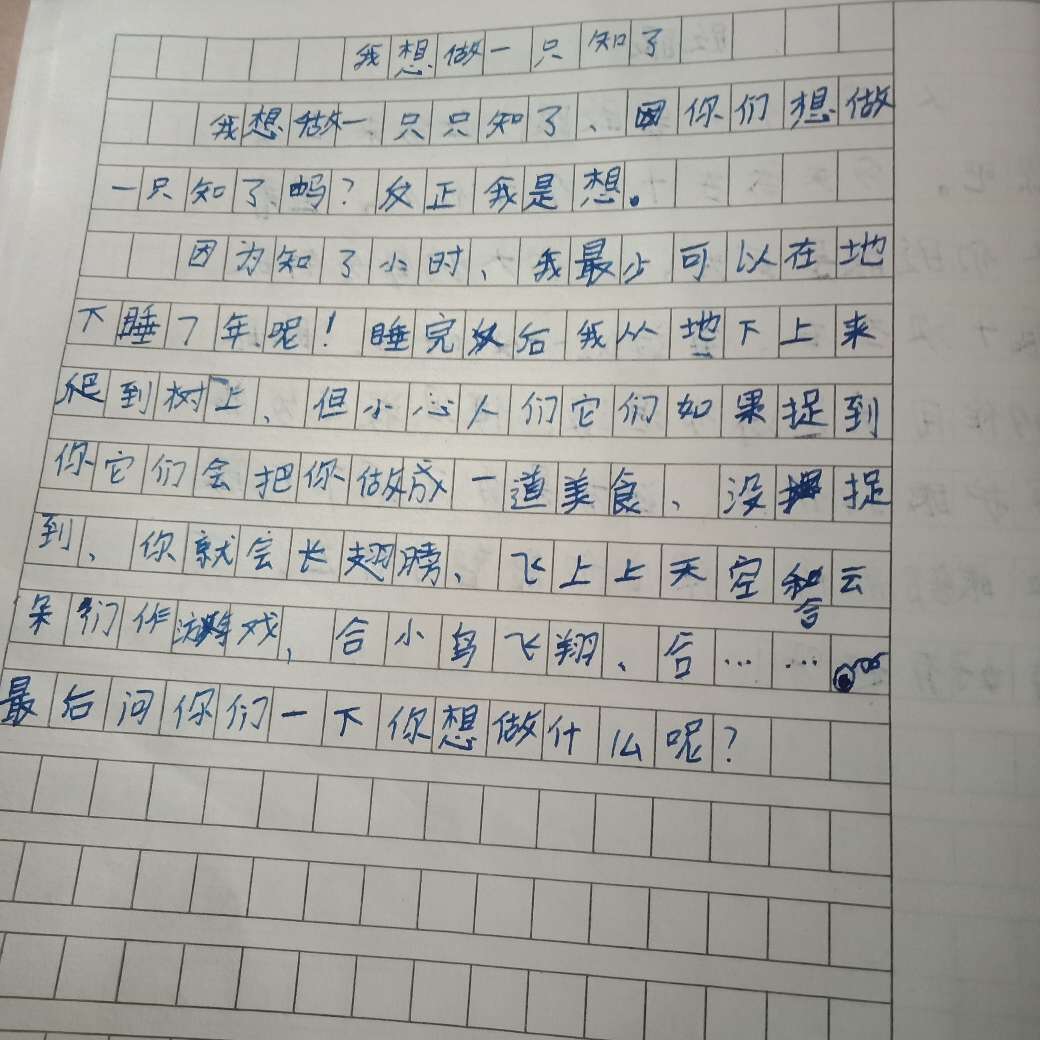 我想做一只知了
我想做一只只知了、因你们想做
一只知了吗?反正我是想。
因为知了小时、我最少可以在地
下睡7年呢!睡完以后我从地下上来
爬到树上、但小心人们它们如果捉到
你它们会把你做成一道美食、没捉
到、你就会长翅膀、飞上上天空和云
朵们作游戏,合小鸟飞翔、合……。
最后问你们一下你想做什么呢?